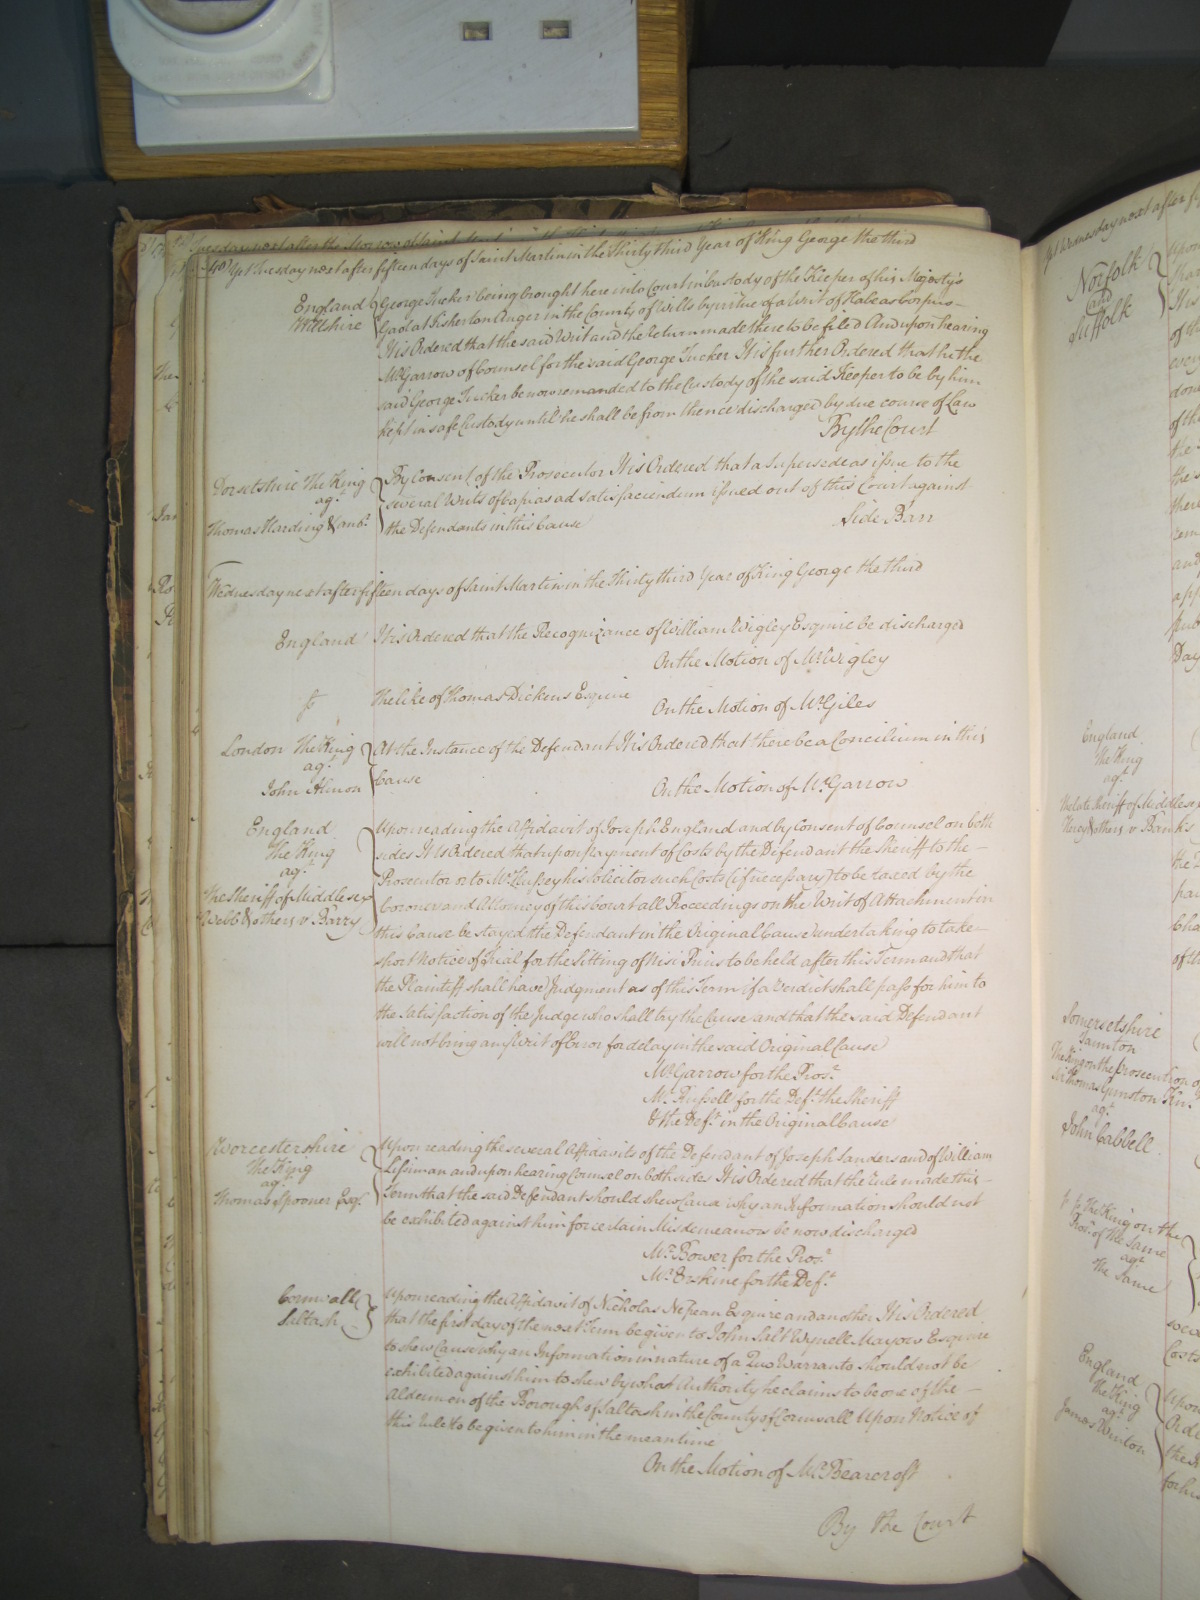 Yet Tuesday next after fifteen days of Saint Martin in the thirty third Year of King George the third
England
Wiltshire
George Tucker being brought here into Court in Custody of the Keeper of his Majesty's
Gaol at Fisherton Anger in the County of Wilts by virtue of a Writ of Habeas Corpus
It is Ordered that the said Writ and the Return made thereto be filed And upon hearing
Mr. Garrow of Counsel for the said George Tucker It is further Ordered that he the
said George Tucker be now remanded to the Custody of the said Keeper to be by him
kept in safe Custody until he shall be from thence discharged by due course of Law
By the Court
Dorsetshire The King
agt.
Thomas Harding & anor.
By Consent of the Prosecutor It is Ordered that a Supersedeas issue to the
several Writs of Capias ad satisfaciendum issued out of this Court against
the Defendants in this Cause
Side Barr
Wednesday next after fifteen days of Saint Martin in the Thirty third Year of King George the third
England
It is Ordered that the Recognizance of William Wigley Esquire be discharged
On the Motion of Mr. Wigley
The like of Thomas Dickens Esquire
On the Motion of Mr. Giles
London The King
agt.
John Almon
At the Instance of the Defendant It is Ordered that there be a Concilium in this
Cause
On the Motion of Mr. Garrow
England
The King
agt.
The Sheriff of Middlesex
Webb & others v Barry
Upon reading the Affidavit of Joseph England and by Consent of Counsel on both
sides It Is Ordered that upon payment of Costs by the Defendant the Sheriff to the
Prosecutor or to Mr. Hussey his Solicitor such Costs (if necessary) to be taxed by the
Coroner and Attorney of this Court all Proceedings on the Writ of Attachment in
this Cause be stayed the Defendant in the Original Cause undertaking to take
short Notice of Trial for the Sitting of Nisi Prius to be held after this Term and that
the Plaintiff shall have Judgment as of this Term if a Verdict shall pass for him to
the satisfaction of the Judge who shall try the Cause and that the said Defendant
will not bring any Writ of Error for delay in the said Original Cause
Mr. Garrow for the Prosr.
Mr. Russell for the Deft. the Sheriff
& the Deft. in the Original Cause
Worcestershire
The King
agt.
Thomas Spooner Esqr.
Upon reading the several Affidavits of the Defendant of Joseph Sanders and of William
and upon hearing Counsel on both sides It is Ordered that the Rule made this
Term that the said Defendant should shew Cause why an Information should not
be exhibited against him for certain Misdemeanors be now discharged
Mr. Bower for the Prosr.
Mr. Erskine for the Deft.
Cornwall
Saltash
Upon reading the Affidavit of Nicholas Nepean Esquire and another It is Ordered
that the first day of the next Term be given to John Salt Wynell Mayow Esquire
to shew Cause why an Information in nature of a Quo Warranto should not be
exhibited against him to shew by what Authority he claims to be one of the
Aldermen of the Borough of Saltash in the County of Cornwall Upon Notice of
this Rule to be given to him in the mean time
On the Motion of Mr. Bearcroft
By the Court
Yet Wednesday next after
Norfolk
and
Suffolk
England
The King
agt.
The late Sheriff of Middlesex
& others v Banks
Somersetshire
Taunton
The King on the Prosecution of
Sir Thomas Gunston Knt.
agt.
John Cabbell
The King on the
Prosn. of the Same
agt.
The Same
England
The King
agt.
James Winton